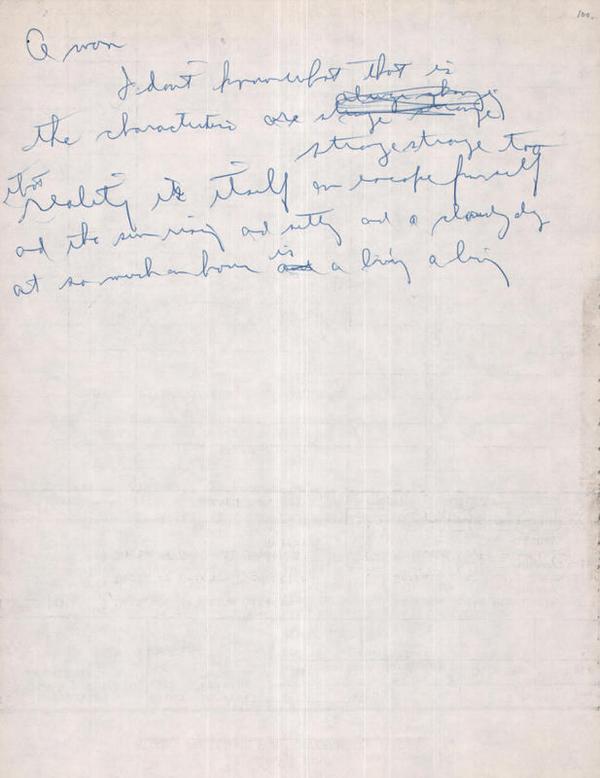 100.
A man
I don't know what that is
the characteristic are strange strange
strange strange too
that
reality is itself an escape from self
and the sun rising and setting and a cloudy day
is
at so much an hour a living a living